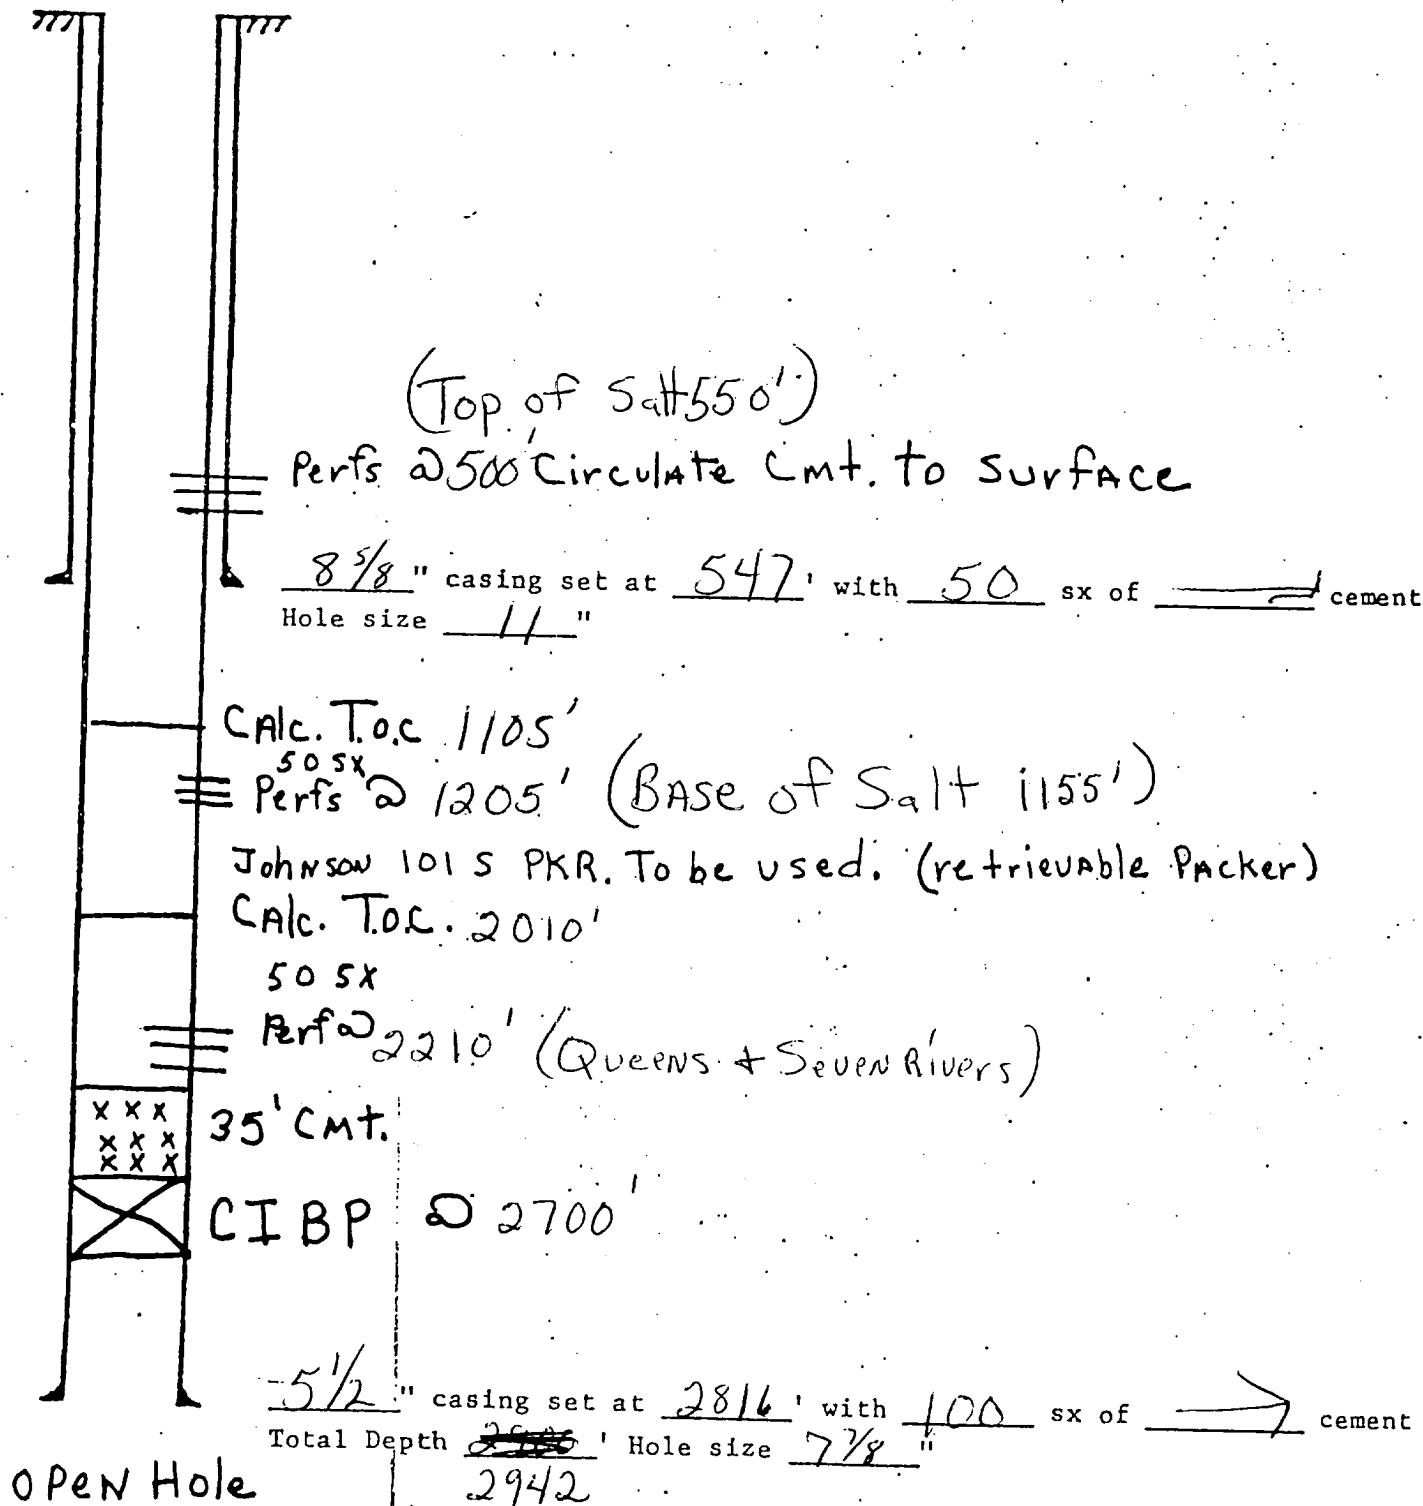 (Top of Salt 550')
Perfs @ 500' Circulate Cmt. to Surface
8 5/8 " casing set at 547 ' with 50 sx of cement
Hole size 11 "
CAlc. T.O.C 1105'
50 SX
Perfs @ 1205' (BASE of Salt 1155')
JohNSON 101 S PKR. To be used. (retrievable PAcker)
CAlc. T.O.C. 2010'
50 SX
Perf @ 2210' (QueeNS + SeveN Rivers)
35' CMt.
CIBP @ 2700'
5 1/2 " casing set at 2816 ' with 100 sx of cement
Total Depth ' Hole size 7 7/8 "
2942
OPEN Hole